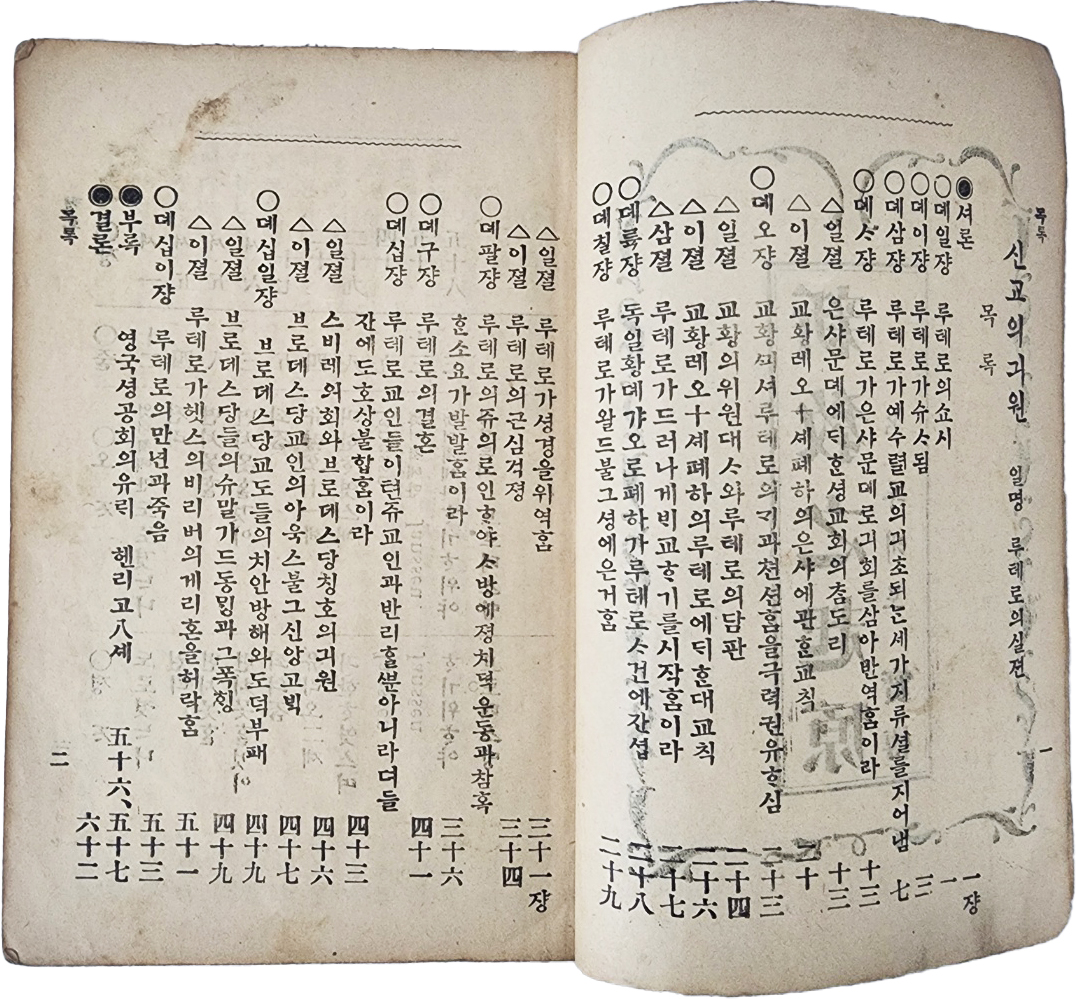 목록
신교의긔원 일명 루테로의실젼
목록
◉셔론 一쟝
○뎨일쟝 루테로의쇼시 一
○뎨이쟝 루테로가슈ᄉ됨 三
○뎨삼쟝 루테로가예수렬교의긔초되ᄂᆞᆫ세가지류셜를지어냄 七
○뎨ᄉ쟝 루테로가은샤문뎨로긔회를삼아반역홈이라 十三
△일졀 은샤문뎨에ᄃᆡᄒᆞᆫ셩교회의츙도리 十三
△이졀 교황레오十셰폐하의은샤에관ᄒᆞᆫ교칙 二十
○뎨오쟝 교황ᄭᅴ셔루테로의긔과쳔션홈을극력권유ᄒᆞ심 二十三
△일졀 교황의위원대ᄉ와루테로의담판 二十四
△이졀 교황레오十셰폐하의루테로에ᄃᆡᄒᆞᆫ대교칙 二十六
△삼졀 루테로가드러나게ᄇᆡ교ᄒᆞ기를시작홈이라 二十七
○뎨륙쟝 독일황뎨갸오로폐하가루테로ᄉ건에간셥 二十八
○뎨칠쟝 루테로가왈드불그셩에은거홈 二十九
一
△일졀 루테로가셩경을위역홈 三十一쟝
△이졀 루테로의근심걱졍 三十四
○뎨팔쟝 루테로의쥬의로인ᄒᆞ야ᄉ방에졍치뎍운동과참혹
ᄒᆞᆫ소요가발발홈이라 三十六
○뎨구쟝 루테로의결혼 四十一
○뎨십쟝 루테로교인들이텬쥬교인과반리ᄒᆞᆯᄲᅮᆫ아니라뎌들
간에도호상불합홈이라 四十三
△일졀 스비레의회와브로데스당칭호의긔원 四十六
△이졀 브로데스당교인의아욱스불그신앙고ᄇᆡᆨ 四十七
○뎨십일쟝 브로데스당교도들의치안방해와도덕부패 四十九
△일졀 브로데스당들의슈말가드동ᄆᆡᆼ과그폭ᄒᆡᆼ 四十九
△이졀 루테로가헷스의비리버의게리혼을허락홈 五十一
○뎨십이쟝 루테로의만년과죽음 五十三
◉부록 영국셩공회의유리 헨리고八셰 五十六、五十七
◉결론 六十二
목록
二